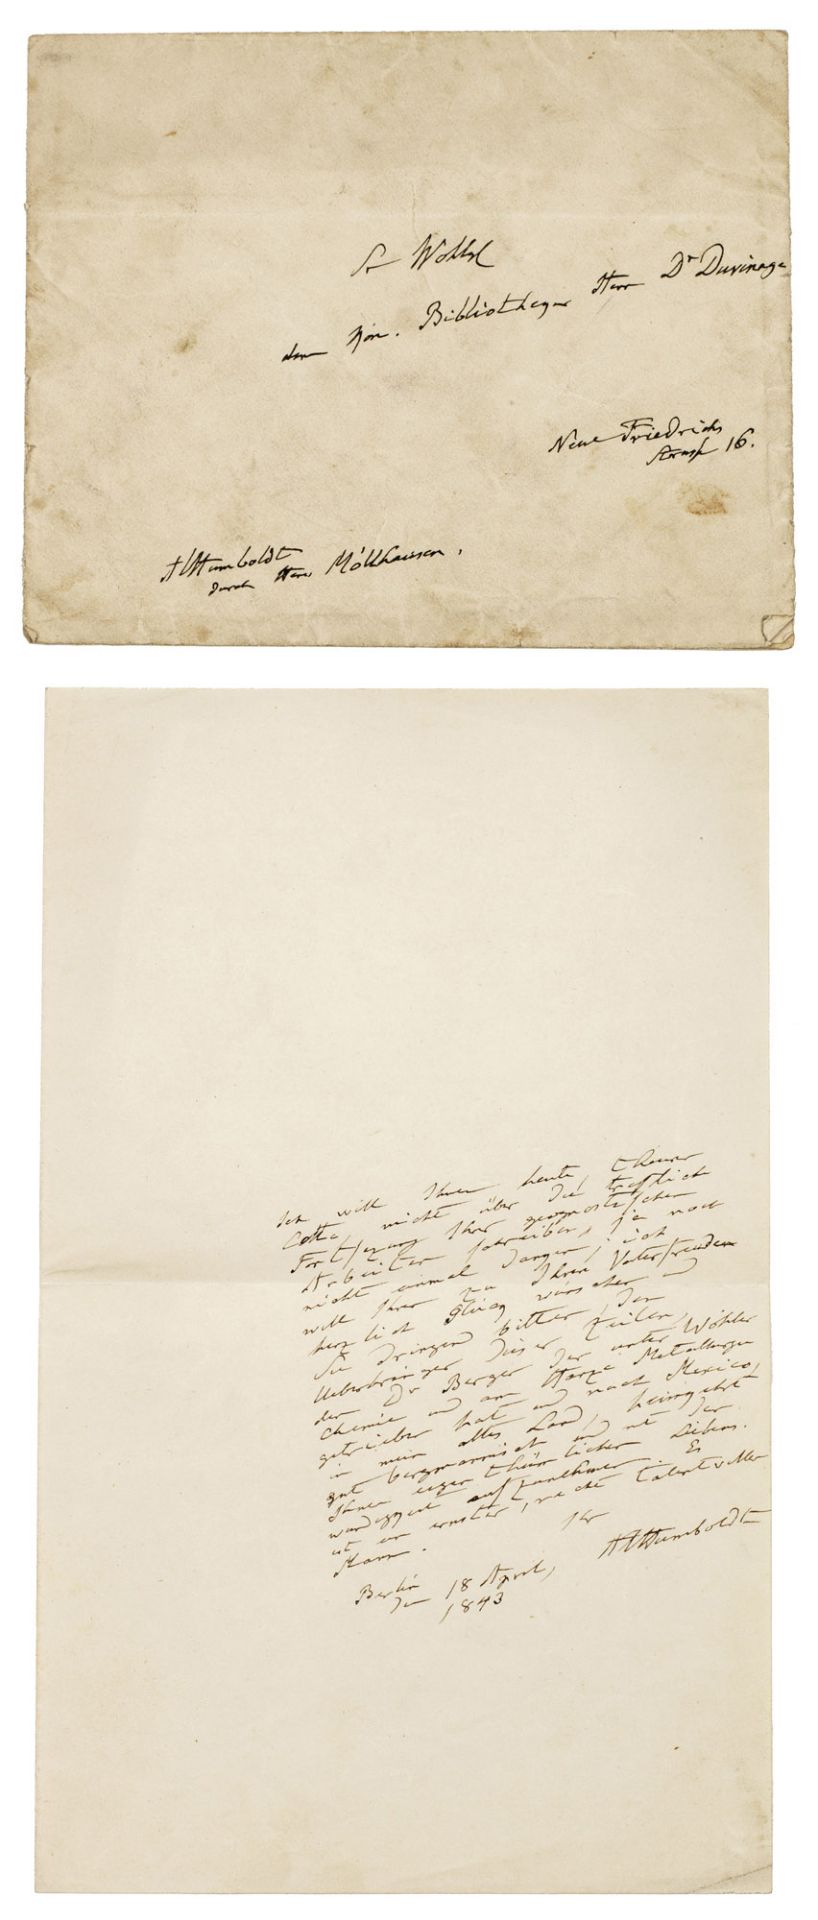 Sr Wohlg
dem Kön. Bibliothequar Herr Dr Duvinage
Neue Friedrichs
Strasse 16.
AlHumboldt
durch Herr Möllhausen.
Ich will Ihnen heute, theurer
Cotta, nicht über die treflich
Fortsezung Ihrer geognostischen
Arbeiten schreiben, ja noch
nicht einmal danken; ich
will Ihnen zu Ihren Vaterfreuden
herzlich Glück wünschen und
Sie dringend bitten, den
Ueberbringer dieser Zeilen,
den Dr Berger der unter Wöhler
Chemie und am Harze Metallurgie
getrieben hat und nach Mexico,
in mein altes Land,
gut bergmännisch und mit der
Ihnen eigenthümlichen Liebens
würdigkeit aufzunehmen. Es
ist ein ernster, recht talentvoller
Mann.
Ihr
AlHumboldt
Berlin
den 18 April,
1843